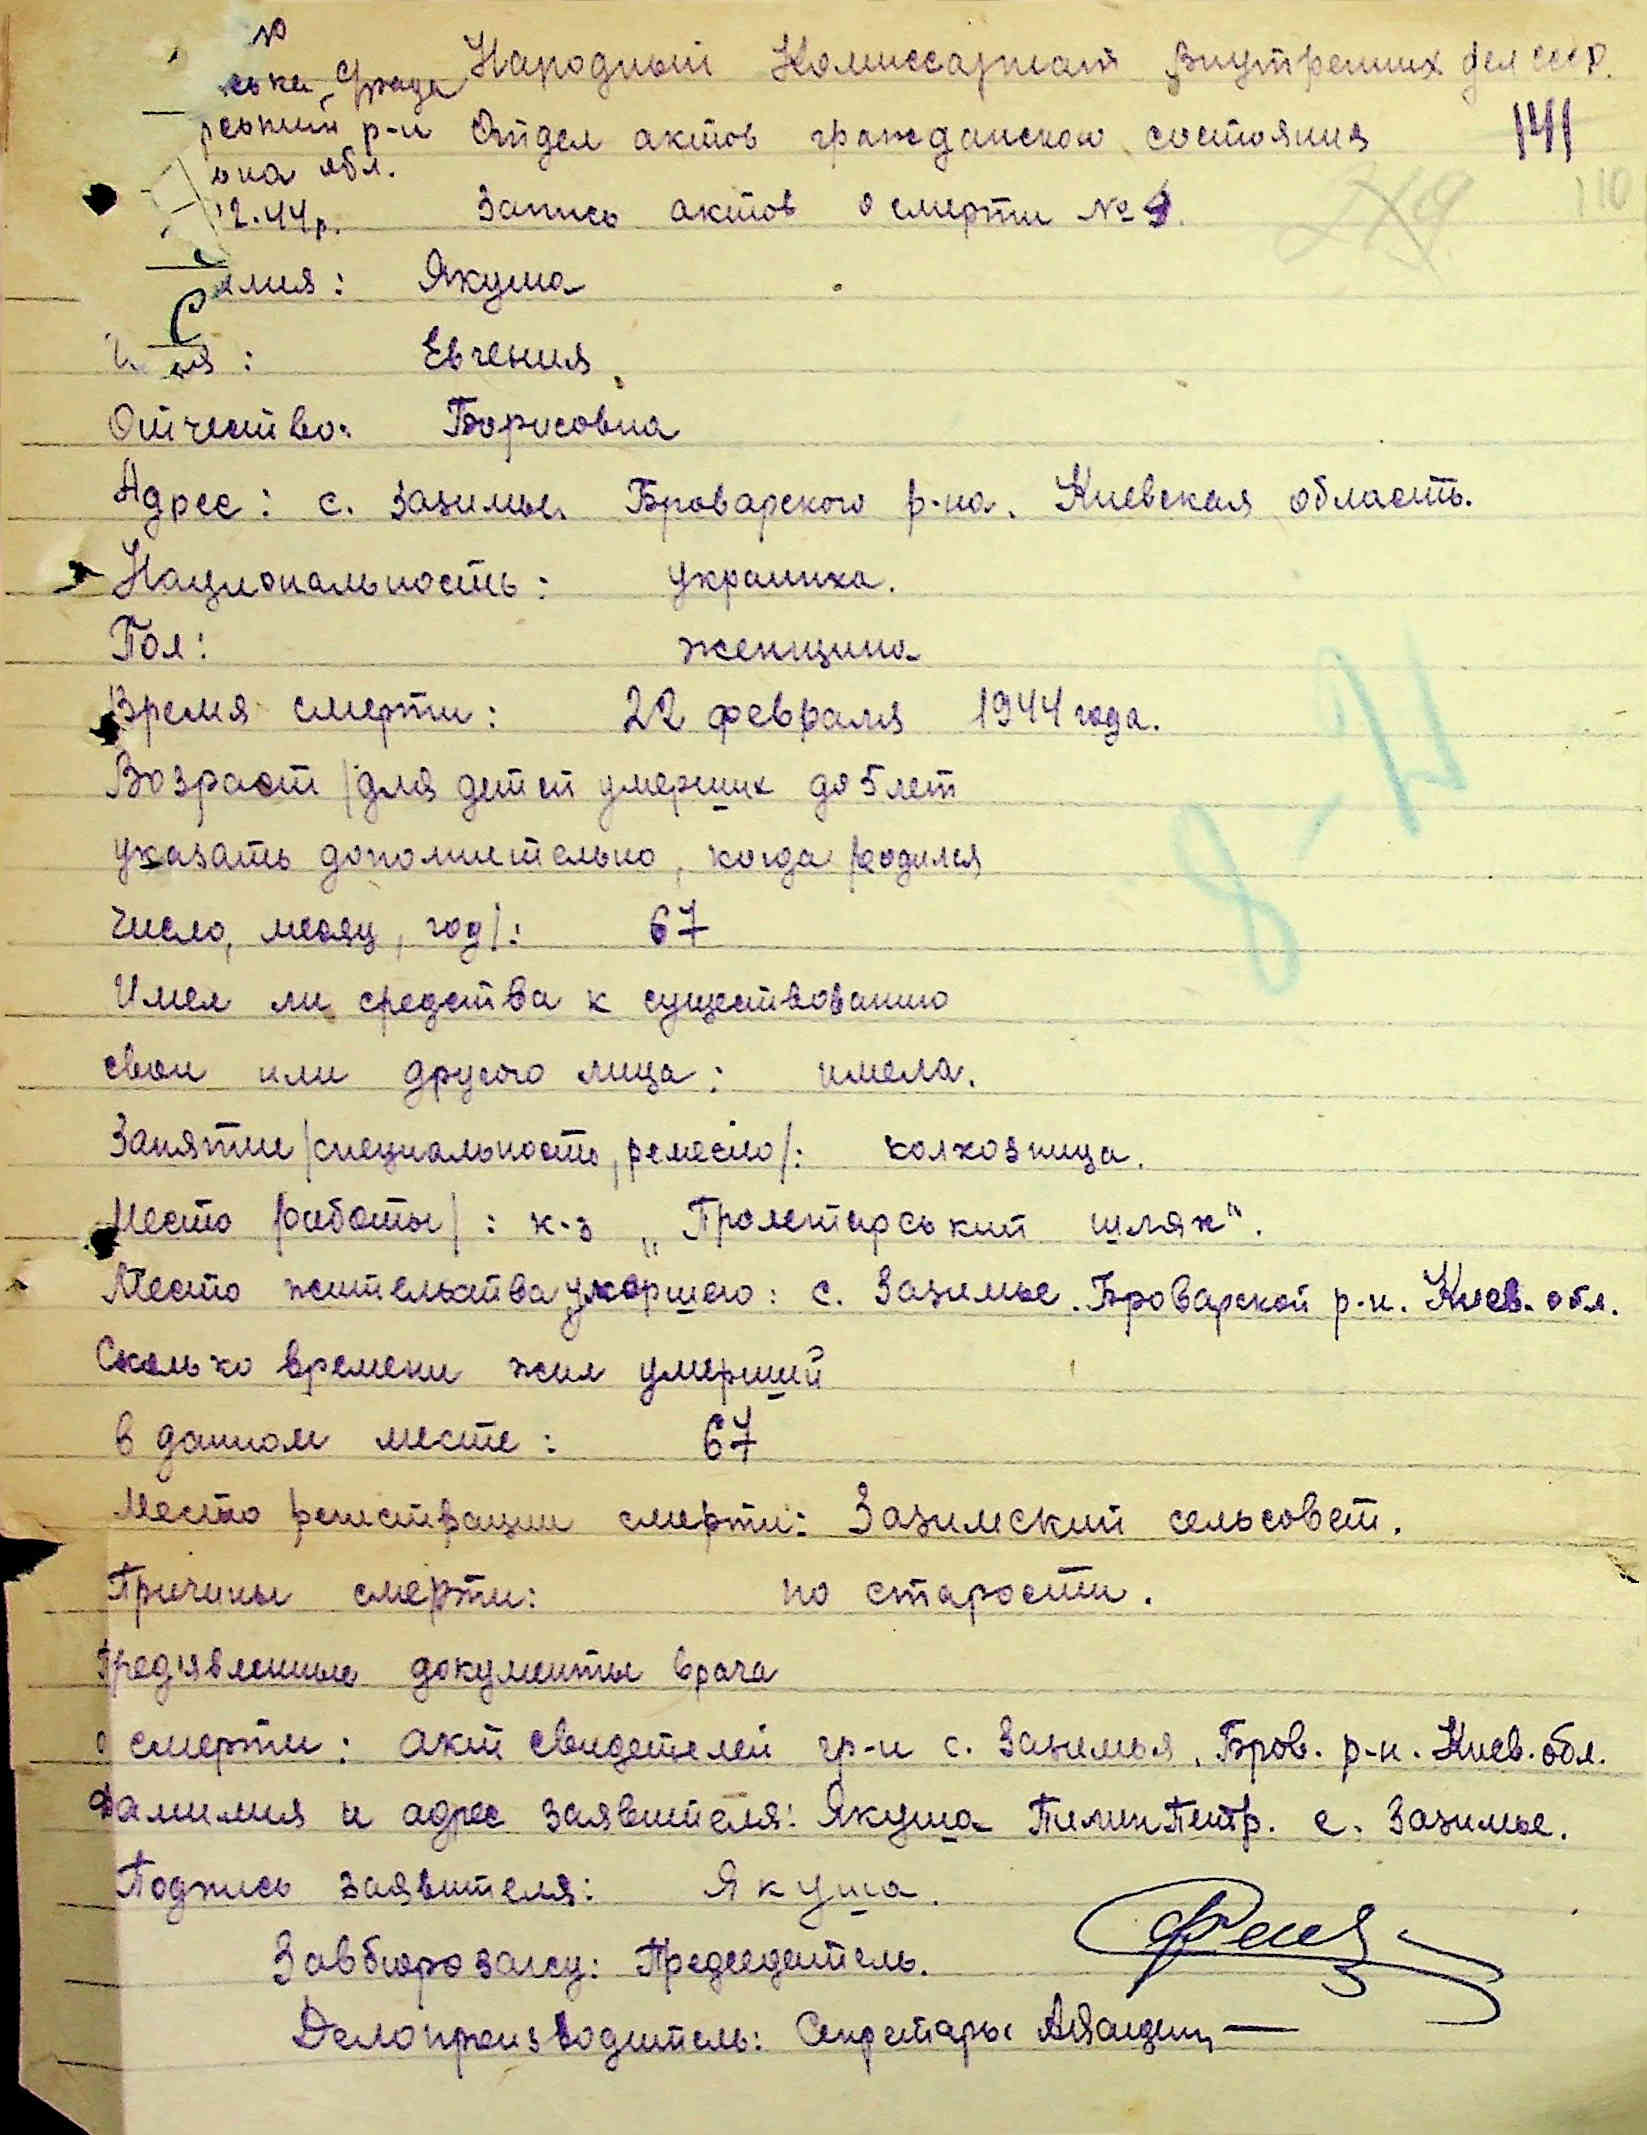 Народный Комиссариат Внутренних дел СССР.
р-н Отдел актов гражданского состояния 141
обл.
2.44р. Запись актов о смерти №
110
лия: Якуша
Имя: Евгения
Отчество: Борисовна
Адрес: с. Зазимье. Броварского р-на. Киевская область.
Национальность: украинка.
Пол: женщина
Время смерти: 22 февраля 1944 года.
Возраст /для детей умерших до 5 лет
указать дополнительно, когда родился
число, месяц, год/: 67
Имел ли средства к существованию
свои или другого лица: имела.
Занятие /специальность, ремесло/: колхозница.
Место работы/: к-з „Пролетарський шлях“.
Место жительства умершего: с. Зазимье. Броварской р-н. Киев. обл.
Сколько времени жил умерший
в данном месте: 67
Место регистрации смерти: Зазимский сельсовет.
Причины смерти: по старости.
Предъявленные документы врача
о смерти: акт свидетелей гр-н с. Зазимья, Бров. р-н. Киев. обл.
Фамилия и адрес заявителя: Якуша Петр. с. Зазимье.
Подпись заявителя: Якуша.
Завбюро загсу: Председатель.
Делопроизводитель: Секретарь